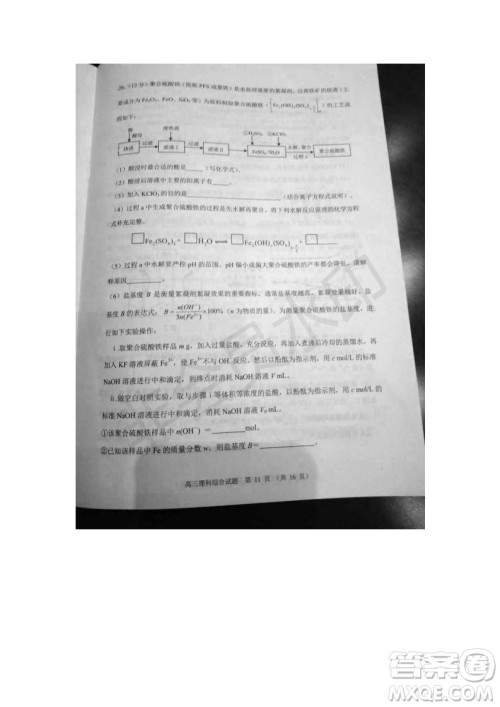 26.（12分）聚合硫酸铁（简称 PFS 或聚铁）是水处理重要的絮凝剂，以黄铁矿的烧渣（主
要成分为 Fe₂O₃、FeO、SiO₂等）为原料制取聚合硫酸铁（[Fe₂(OH)ₙ(SO₄)₃₋ₙ/₂]ₘ）的工艺流
程如下：
酸
酸浸
烧渣
过滤
溶液 I
过滤
溶液 II
①H₂SO₄ ②KClO₃
FeSO₄·7H₂O
水解、聚合
过程 a
聚合硫酸铁
（1）酸浸时最合适的酸是______（写化学式）。
（2）酸浸后溶液中主要的阳离子有______。
（3）加入 KClO₃ 的目的是______（结合离子方程式说明）。
（4）过程 a 中生成聚合硫酸铁的过程是先水解再聚合。将下列水解反应原理的化学方程
式补充完整。
□Fe₂(SO₄)₃ + □H₂O ⇌ □Fe₂(OH)ₙ(SO₄)₃₋ₙ/₂ + □______
（5）过程 a 中水解要严控 pH 的范围。pH 偏小或偏大聚合硫酸铁的产率都会降低，请解
释原因______
（6）盐基度 B 是衡量絮凝剂絮凝效果的重要指标。聚合硫酸铁，盐基度越高，絮凝效果越
基度 B 的表达式：B = n(OH⁻)/3n(Fe³⁺) ×100%（n 为物质的量）。为测量聚合硫酸铁的盐基度，进
行如下实验操作：
i.取聚合硫酸铁样品 m g，加入过量盐酸，充分反应，再加入煮沸后冷却的蒸馏水，再
加入 KF 溶液屏蔽 Fe³⁺，使 Fe³⁺不与 OH⁻反应，然后以酚酞为指示剂，用 c mol/L 的标准
NaOH 溶液进行中和滴定，到终点时消耗 NaOH 溶液 V mL。
ii.做空白对照实验，取与步骤 i 等体积等浓度的盐酸，以酚酞为指示剂，用 c mol/L 的标
NaOH 溶液进行中和滴定，消耗 NaOH 溶液 V₀ mL。
①该聚合硫酸铁样品中 n(OH⁻) =______mol。
②已知该样品中 Fe 的质量分数 w，则盐基度 B=______。
高三理科综合试题 第 11 页 （共 16 页）
答案圈
MXQE.COM